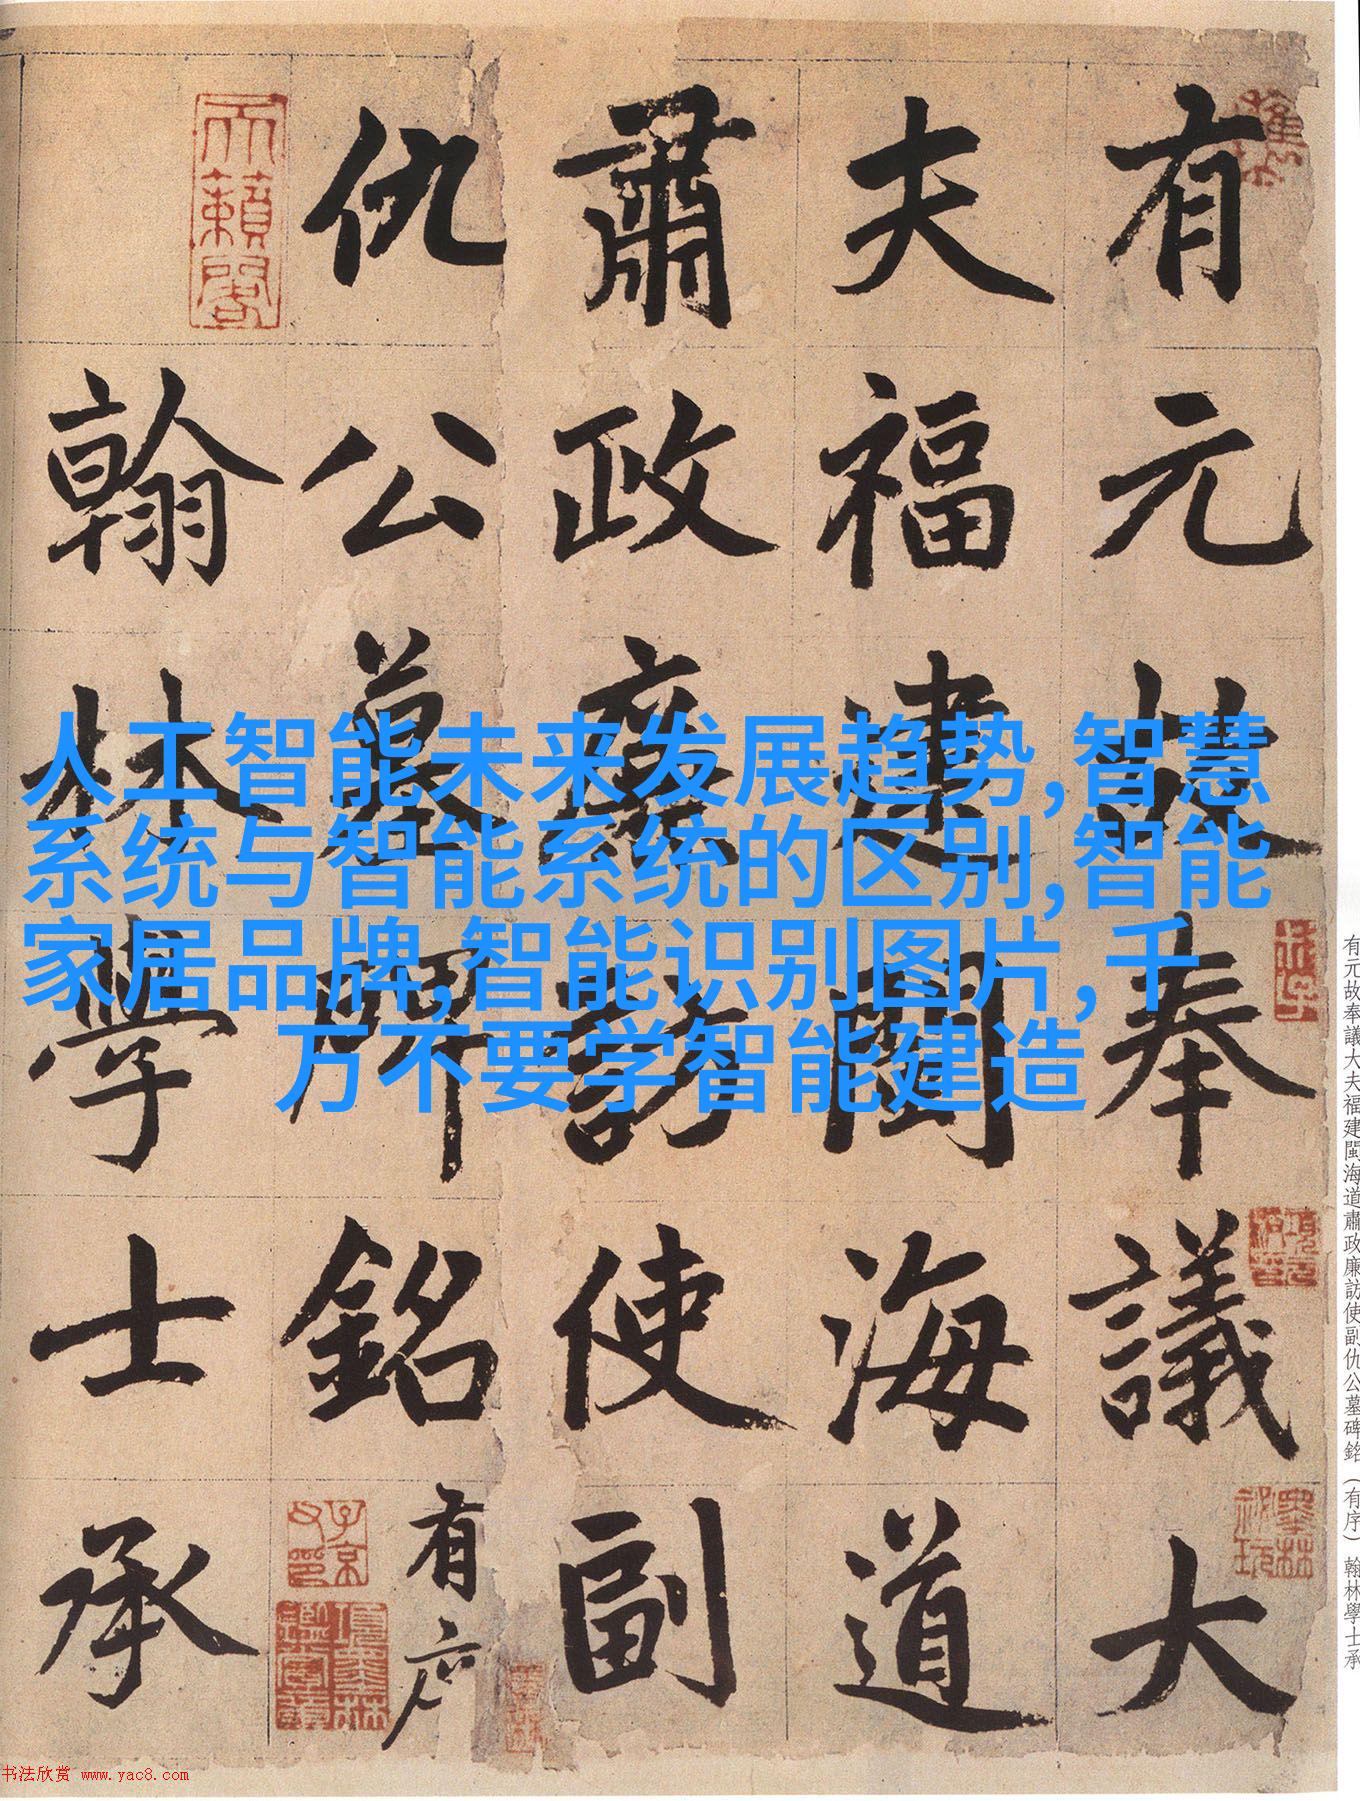 有元故奉議大
夫福建閩海道
肅政廉訪使副
仇公墓碑銘有序
翰林學士承
天籟閣
人工智能未来发展趋势,智慧
系统与智能系统的区别,智能
家居品牌,智能识别图片,千
万不要学智能建造
有元故奉議大夫福建閩海道肅政廉訪使副仇公墓碑銘(有序) 翰林學士承
书法欣赏 www.yac8.com